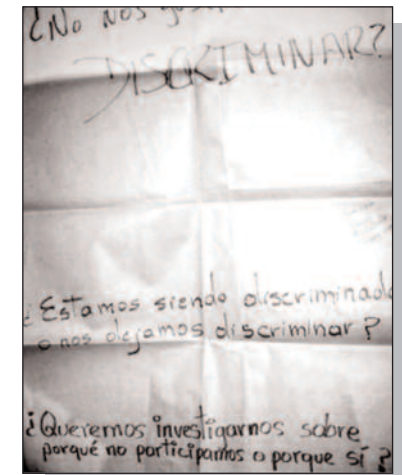 ¿No nos
DISCRIMINAR?
¿Estamos siendo discriminad
o nos dejamos discriminar?
¿Queremos investigarnos sobre
porqué no participamos o porque sí?